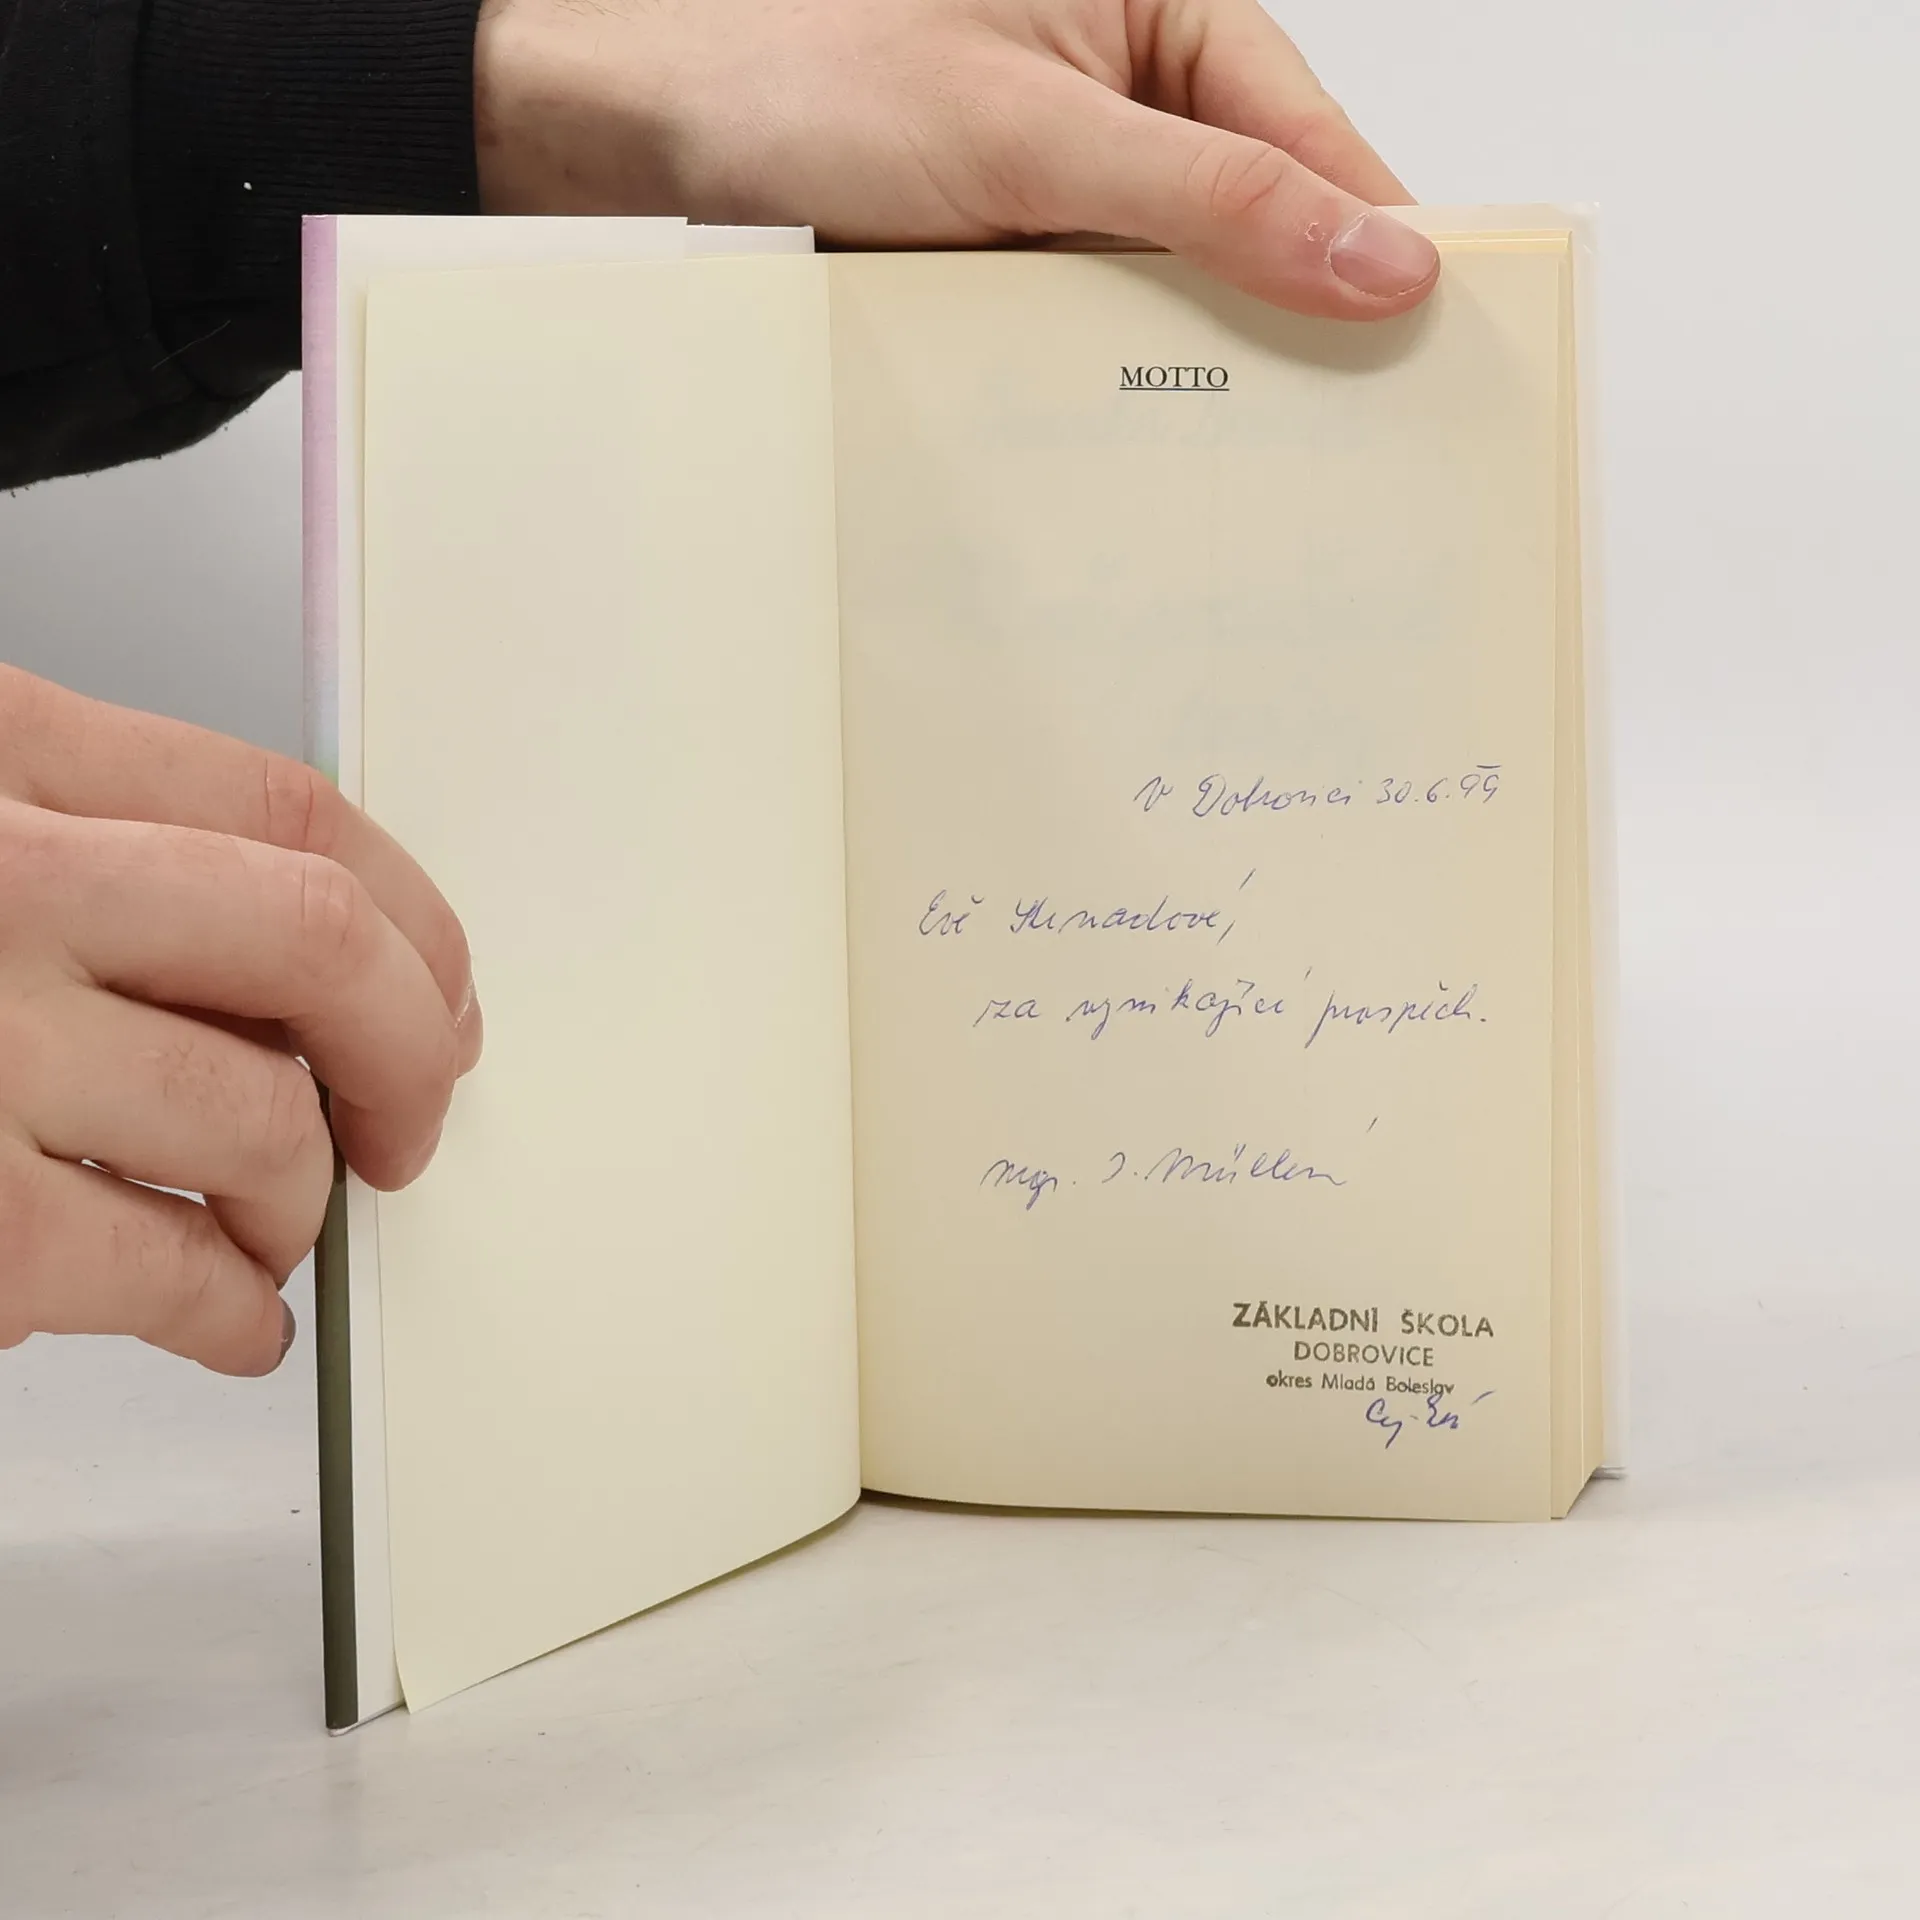 MOTTO
V Dobrovici 30.6.99
Evě
za vynikající prospěch.
Mgr. J. Müllerová
ZÁKLADNÍ ŠKOLA
DOBROVICE
okres Mladá Boleslav